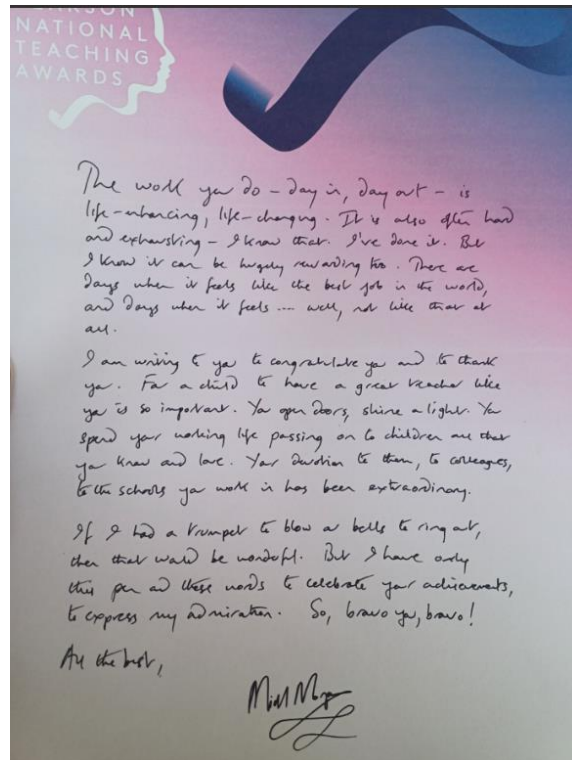 PEARSON
NATIONAL
TEACHING
AWARDS
The work you do – day in, day out – is
life-enhancing, life-changing. It is also often hard
and exhausting – I know that. I've done it. But
I know it can be hugely rewarding too. There are
days when it feels like the best job in the world,
and days when it feels .... well, not like that at
all.
I am writing to you to congratulate you and to thank
you. For a child to have a great teacher like
you is so important. You open doors, shine a light. You
spend your working life passing on to children all that
you know and love. Your devotion to them, to colleagues,
to the schools you work in has been extraordinary.
If I had a trumpet to blow or bells to ring out,
then that would be wonderful. But I have only
this pen and these words to celebrate your achievements,
to express my admiration. So, bravo you, bravo!
All the best,